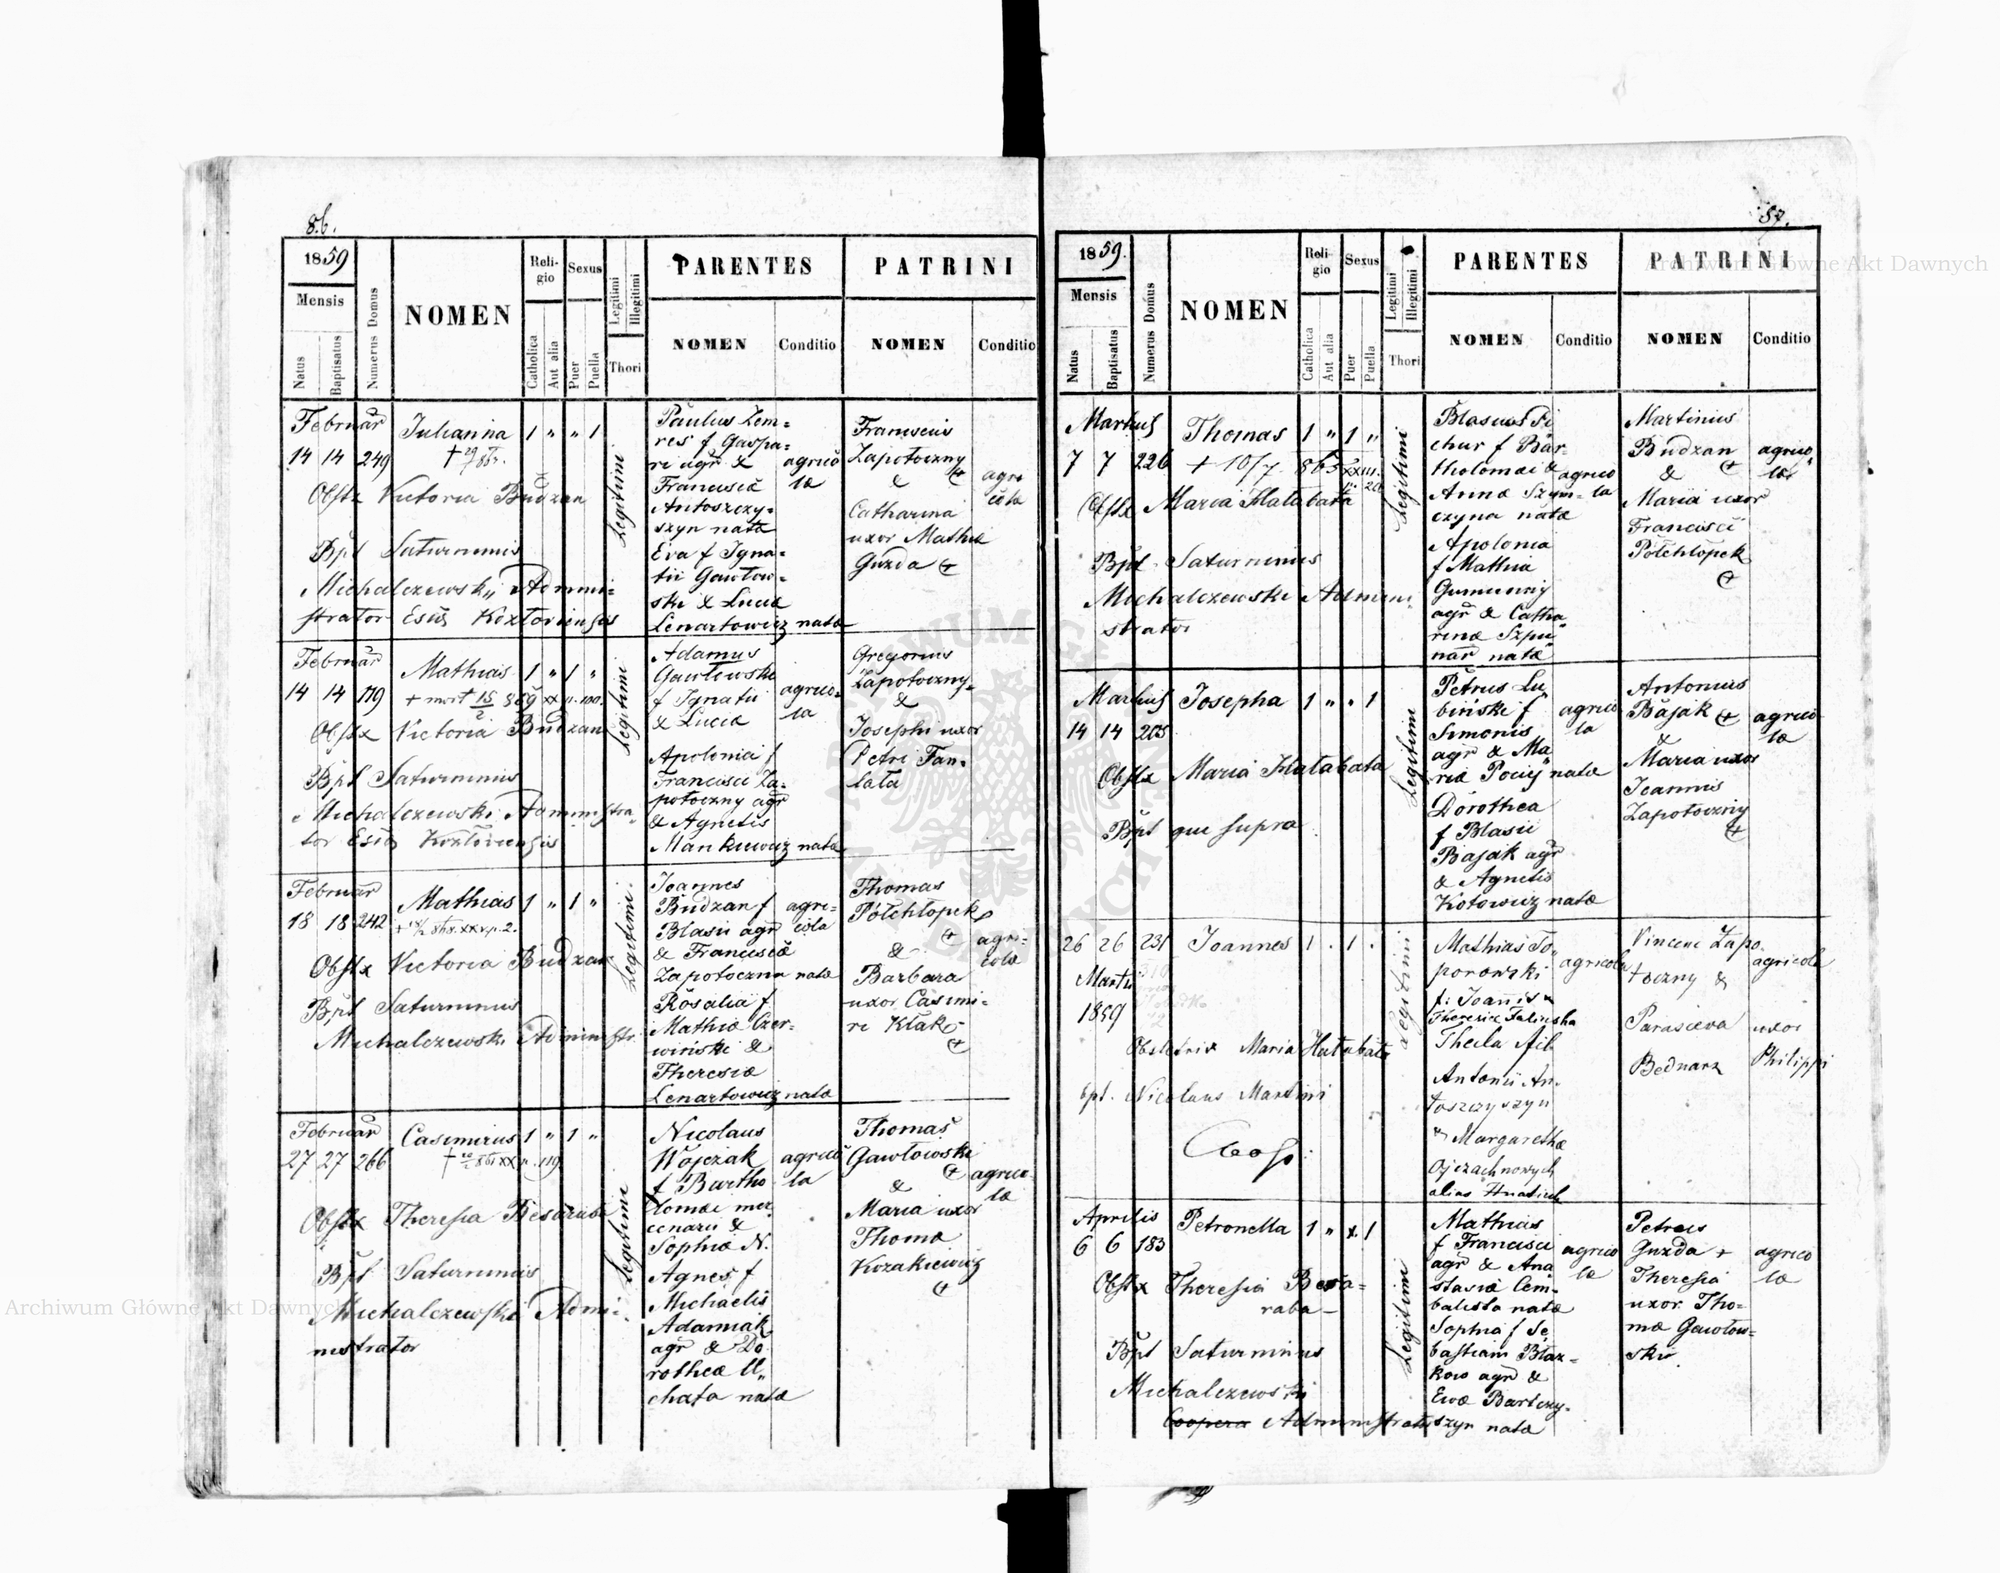 86.
1859
Mensis
Natus
Baptisatus
Numerus Domus
NOMEN
Religio
Catholica
Aut alia
Sexus
Puer
Puella
Legitimi
Illegitimi
Thori
PARENTES
NOMEN
Conditio
PATRINI
NOMEN
Conditio
Februar
14 14 249
Julianna 1 " " 1
Obstx Victoria Budzan
Bpt Saturninus
Michalczewski Admini-
strator Esiae Kozloviensis
Legitimi
Paulus Zem-
res f Gaspa-
ri agr &
Francisca
Antoszczy-
szyn nata
Eva f Igna-
tii Gawlow-
ski & Lucia
Lenartowicz nata
agrico
la
Franciscus
Zapotoczny
&
Catharina
uxor Mathia
Guzda
agri
cola
Februar
14 14 179
Mathias 1 " 1 "
+ mort 15/2 859 xx p. 100.
Obstx Victoria Budzan
Bpt Saturninus
Michalczewski Administra-
tor Esiae Kozloviensis
Legitimi
Adamus
Gawlewski
f Ignatii
& Lucia
Apolonia f
Francisci Za-
potoczny agr
& Agnetis
Mankiewicz nata
agrico-
la
Gregorius
Zapotoczny
&
Josephi uxor
Petri Fan-
tala
Februar
18 18 242
Mathias 1 " 1 "
Obstx Victoria Budzan
Bpt Saturninus
Michalczewski Administr.
Legitimi
Joannes
Budzan f
Blasii agr
& Francisca
Zapotoczna nata
Rosalia f
Mathia Czer-
winski &
Theresia
Lenartowicz nata
agri-
cola
Thomas
Pólchlopek
&
Barbara
uxor Casimi-
ri Klak
agri-
cola
Februar
27 27 266
Casimirus 1 " 1 "
Obstx Theresia Besaraba
Bpt Saturninus
Michalczewski Admi-
nistrator
Legitimi
Nicolaus
Wojczak
f Bartho
lomai mer
cenarii &
Sophia N.
Agnes f
Michaelis
Adamiak
agr & Do
rothea U„
chata nata
agrico
la
Thomas
Gawlowski
&
Maria uxor
Thoma
Kozakiewicz
agrico
la
87.
1859.
Mensis
Natus
Baptisatus
Numerus Domus
NOMEN
Religio
Catholica
Aut alia
Sexus
Puer
Puella
Legitimi
Illegitimi
Thori
PARENTES
NOMEN
Conditio
PATRINI
NOMEN
Conditio
Martius
7 7 226
Thomas 1 " 1 "
+ 10/7 863
Obstx Maria Hatabata
Bpt Saturninus
Michalczewski Admini-
strator
Legitimi
Blasius Pi
chur f Bar-
tholomai &
Anna Szym-
czyna nata
Apolonia
f Mathia
Gumunny
agr & Catha
rina Szpu
nar nata
agrico
la
Martinus
Budzan
&
Maria uxor
Francisci
Pólchlopek
agrico
la
Martius
14 14 205
Josepha 1 " " 1
Obstx Maria Hatabata
Bpt que supra
Legitimi
Petrus Lu
binski f
Simonis
agr & Ma
ria Pocij nata
Dorothea
f Blasii
Bajak agr
& Agnetis
Kotowicz nata
agrico
la
Antonius
Bajak
&
Maria uxor
Joannis
Zapotoczny
agrico
la
26 26 231
Martii
1859
Joannes 1 . 1 .
Obstetrix Maria Hatabata
bpt. Nicolaus Martini
Coop:
Legitimi
Mathias To
porowski
f: Joannis &
Theresia Falinska
Thecla fil
Antonii An-
toszczyszyn
& Margaretha
Ojczachnowych
alias Hnatiuk
agricola
Vincenc Zapo
toczny &
Parasceva uxor
Bednarz Philippi
agricola
Aprilis
6 6 183
Petronella 1 " x 1
Obstx Theresia Besa-
raba
Bpt Saturninus
Michalczewski
Coopera Administrator
Legitimi
Mathias
f Francisci
agr & Ana
stasia Cem-
balista nata
Sophia f Se
bastiani Blaz-
kow agr &
Eva Bartczy-
szyn nata
agrico
la
Petrus
Guzda +
Theresia
uxor Tho-
ma Gawlow-
ski
agrico
la
Archiwum Główne Akt Dawnych
Archiwum Główne Akt Dawnych